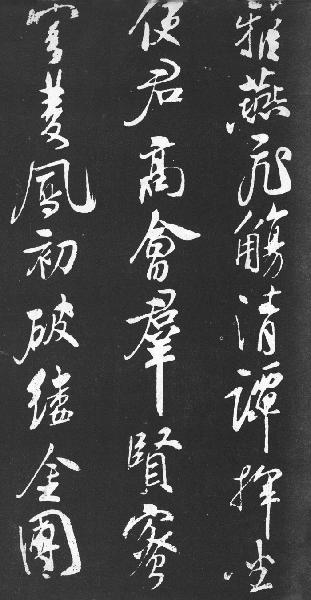 雅燕飛觴清譚揮坐
使君高會羣賢密
雲雙鳳初破縷金團